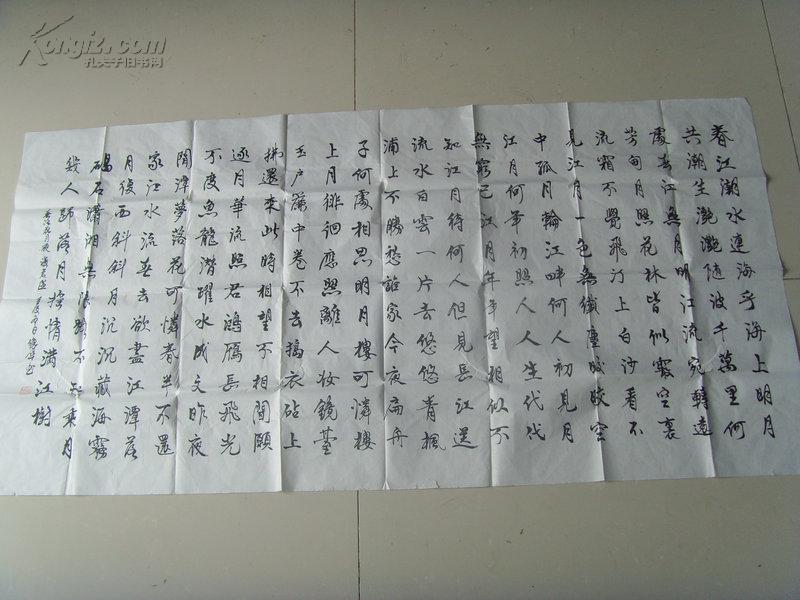 春江潮水連海平海上明月
共潮生灩灩隨波千萬里何
處春江無月明江流宛轉遶
芳甸月照花林皆似霰空裏
流霜不覺飛汀上白沙看不
見江月一色無纖塵皎皎空
中孤月輪江畔何人初見月
江月何年初照人人生代代
無窮已江月年年望相似不
知江月待何人但見長江送
流水白雲一片去悠悠青楓
浦上不勝愁誰家今夜扁舟
子何處相思明月樓可憐樓
上月徘徊應照離人妝鏡臺
玉户簾中卷不去搗衣砧上
拂還來此時相望不相聞願
逐月華流照君鴻雁長飛光
不度魚龍潛躍水成文昨夜
閒潭夢落花可憐春半不還
家江水流春去欲盡江潭落
月復西斜斜月沉沉藏海霧
碣石瀟湘無限路不知乘月
幾人歸落月搖情滿江樹
春江花月夜張若虛
Kongfz.com
孔夫子旧书网